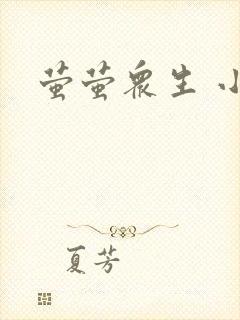 萤萤众生 小
夏芳